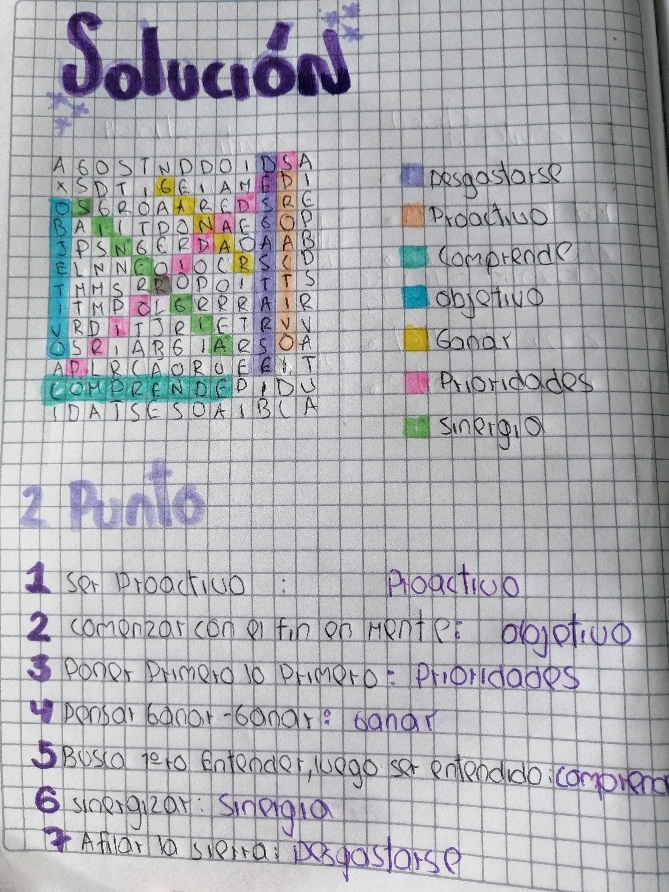 Solución
A G O S T N D D O I D S A
X S D T I G E I A M E D I
O S E R O A A R E D S R E
B A I I T D O N A E G O P
J P S N G E R D A O A A B
E L N N E O I O C R S C D
T M M S R R O D O I T T S
I T M D O L G R R R A I R
V R D I T J R I E T R V V
O S R I A B G I A R S O A
A P E R C A O R O E E I T
C O M P R E N D E P I D U
I D A T S E S O A I B C A
Desgastarse
Proactivo
Comprende
objetivo
Ganar
Prioridades
Sinergia
2 Punto
1 Ser Proactivo : Proactivo
2 comenzar con el fin en Mente: objetivo
3 poner Primero lo Primero: Prioridades
4 pensar Ganar-Ganar: Ganar
5 Busca 1ero Entender, luego ser entendido: comprend
6 sinergizar: Sinergia
7 Afilar la sierra: Desgastarse